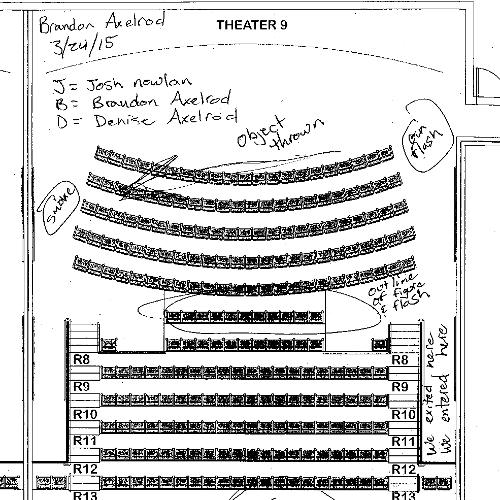 Brandon Axelrod
THEATER 9
3/24/15
J = Josh nowlan
B = Brandon Axelrod
D = Denise Axelrod
Object
thrown
gun
flash
smoke
out line
of figure
& flash
We exited here
We entered here
R8
R8
R9
R9
R10
R10
R11
R11
R12
R12
R13
R13